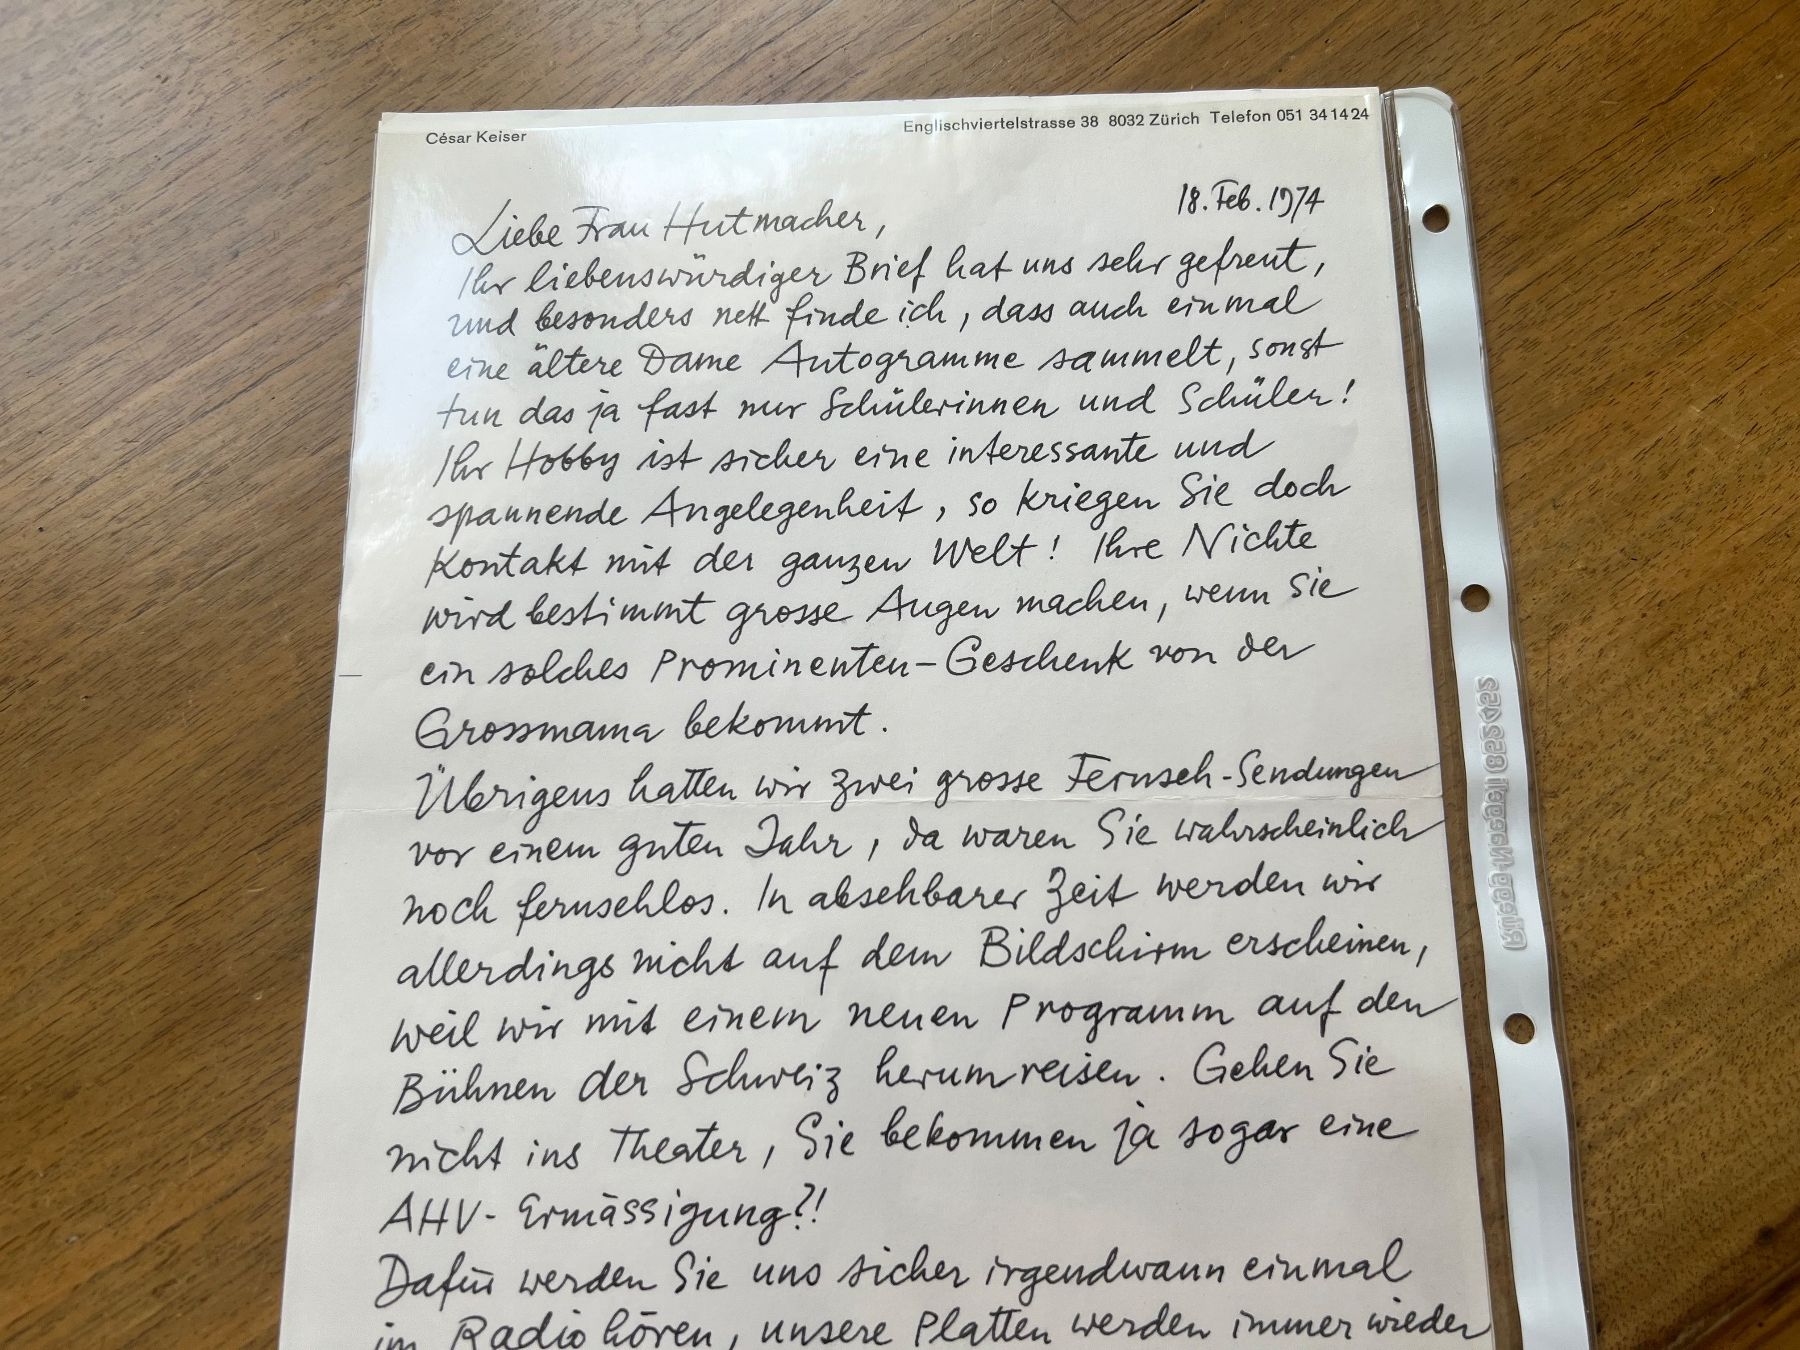 César Keiser
Englischviertelstrasse 38 8032 Zürich Telefon 051 34 14 24
18. Feb. 1974
Liebe Frau Hutmacher,
Ihr liebenswürdiger Brief hat uns sehr gefreut,
und besonders nett finde ich, dass auch einmal
eine ältere Dame Autogramme sammelt, sonst
tun das ja fast nur Schülerinnen und Schüler!
Ihr Hobby ist sicher eine interessante und
spannende Angelegenheit, so kriegen Sie doch
Kontakt mit der ganzen Welt! Ihre Nichte
wird bestimmt grosse Augen machen, wenn Sie
ein solches Prominenten-Geschenk von der
Grossmama bekommt.
Übrigens hatten wir zwei grosse Fernseh-Sendungen
vor einem guten Jahr, da waren Sie wahrscheinlich
noch fernsehlos. In absehbarer Zeit werden wir
allerdings nicht auf dem Bildschirm erscheinen,
weil wir mit einem neuen Programm auf den
Bühnen der Schweiz herumreisen. Gehen Sie
nicht ins Theater, Sie bekommen ja sogar eine
AHV-Ermässigung?!
Dafür werden Sie uns sicher irgendwann einmal
im Radio hören, unsere Platten werden immer wieder